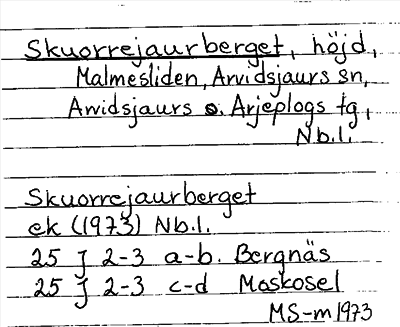 Skuorrejaurberget, höjd,
Malmesliden, Arvidsjaurs sn,
Arvidsjaurs o. Arjeplogs tg,
Nb.l.
Skuorrejaurberget
ek (1973) Nb.l.
25 J 2-3 a-b. Bergnäs
25 J 2-3 c-d Moskosel
MS-m 1973